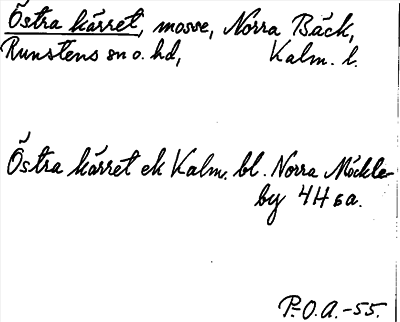 Östra kärret, mosse, Norra Bäck,
Runstens sn o. hd, Kalm. l.
Östra kärret ek Kalm. bl. Norra Möckle-
by 4H 6a.
P.-O.A.-55.